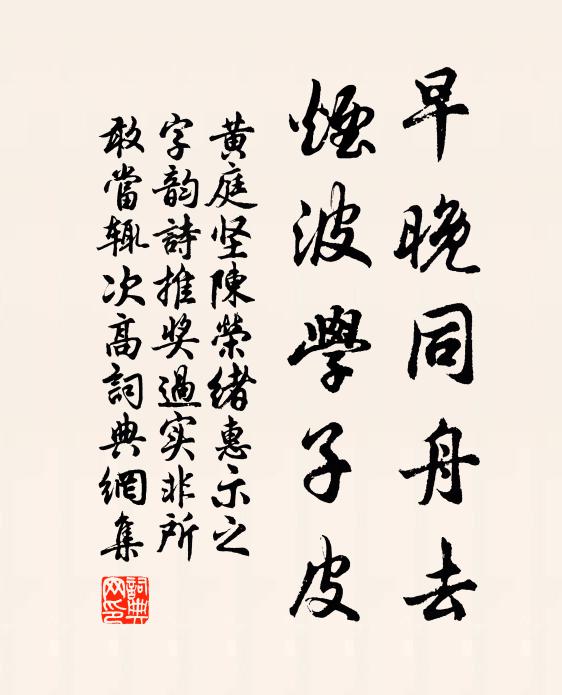 早晚同舟去
煙波學子皮
黄庭坚陳榮緒惠示之
字韵詩推奖過实非所
敢當輒次高詞典網集
詞典网印